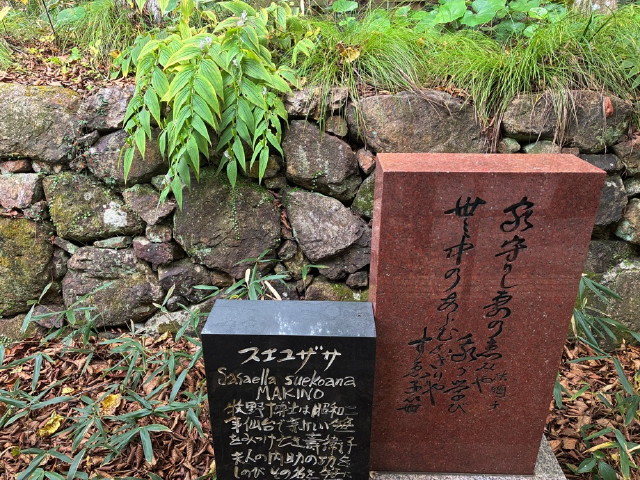 スエコザサ
Sasaella suekoana
MAKINO
牧野博士は昭和二
年仙台で新しい笹
をみつけとき壽衛子
夫人の内助の功を
しのびその名を
家守りし妻の恵みや
我が学び
世の中のあらむかぎりや
すゑ子笹